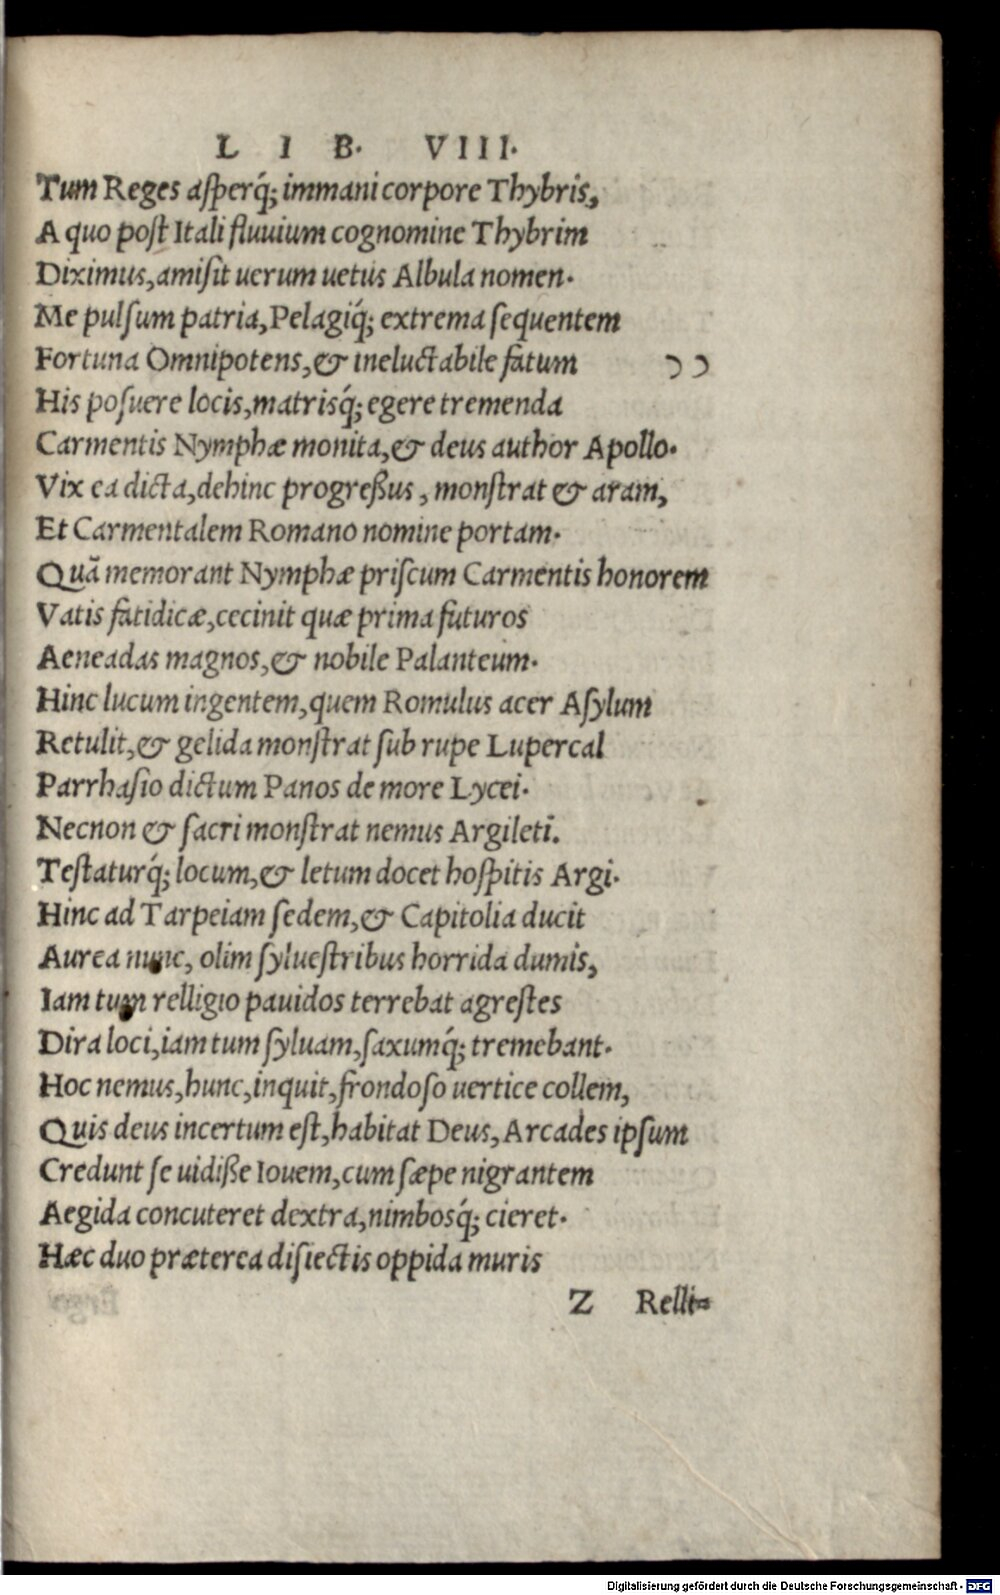 L I B. VIII.
Tum Reges aſperq́; immani corpore Thybris,
A quo poſt Itali fluuium cognomine Thybrim
Diximus, amiſit uerum uetus Albula nomen.
Me pulſum patria, Pelagiq́; extrema ſequentem
Fortuna Omnipotens, & ineluctabile fatum
His poſuere locis, matrisq́; egere tremenda
Carmentis Nymphæ monita, & deus author Apollo.
Vix ea dicta, dehinc progreßus, monſtrat & aram,
Et Carmentalem Romano nomine portam.
Quã memorant Nymphæ priſcum Carmentis honorem
Vatis fatidicæ, cecinit quæ prima futuros
Aeneadas magnos, & nobile Palanteum.
Hinc lucum ingentem, quem Romulus acer Aſylum
Retulit, & gelida monſtrat ſub rupe Lupercal
Parrhaſio dictum Panos de more Lycei.
Necnon & ſacri monſtrat nemus Argileti.
Teſtaturq́; locum, & letum docet hoſpitis Argi.
Hinc ad Tarpeiam ſedem, & Capitolia ducit
Aurea nunc, olim ſylueſtribus horrida dumis,
Iam tum relligio pauidos terrebat agreſtes
Dira loci, iam tum ſyluam, ſaxumq́; tremebant.
Hoc nemus, hunc, inquit, frondoſo uertice collem,
Quis deus incertum eſt, habitat Deus, Arcades ipſum
Credunt ſe uidiße Iouem, cum ſæpe nigrantem
Aegida concuteret dextra, nimbosq́; cieret.
Hæc duo præterea diſiectis oppida muris
Z Relli=
Digitalisierung gefördert durch die Deutsche Forschungsgemeinschaft - DFG